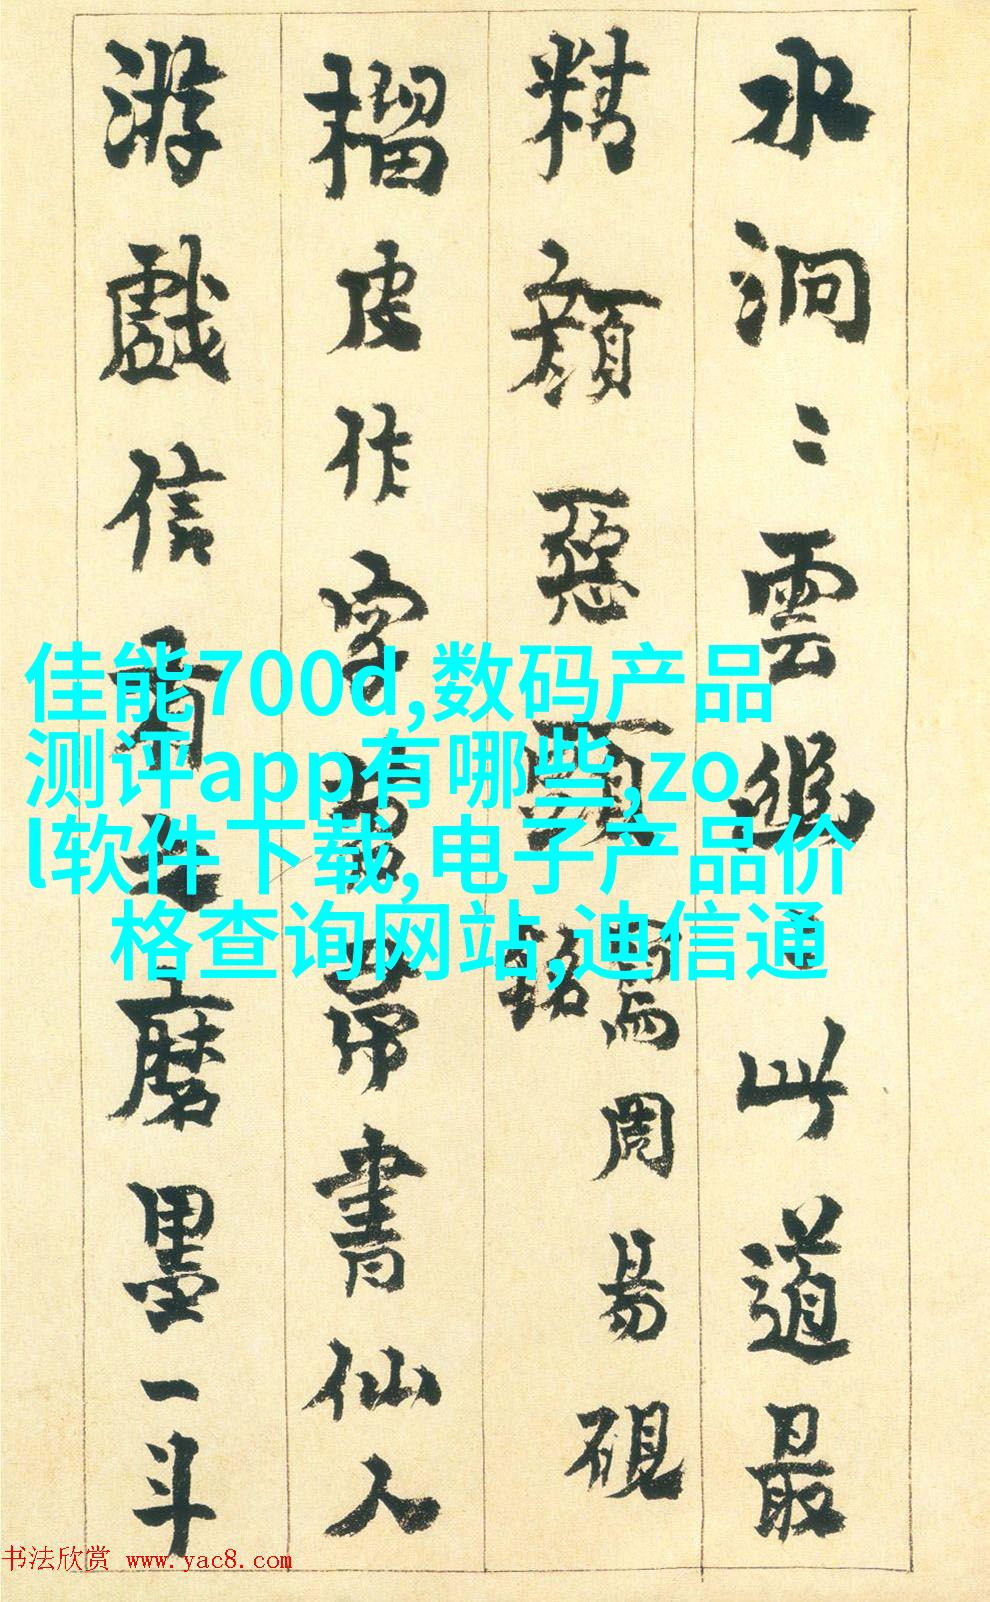 水洞〻雲此道最
精顏惡頭寫周易硯
銘
榴皮作字笤帚書仙人
游戲信有之磨墨一斗
佳能700d,数码产品
测评app有哪些,zo
l软件下载,电子产品价
格查询网站,迪信通
书法欣赏 www.yac8.com